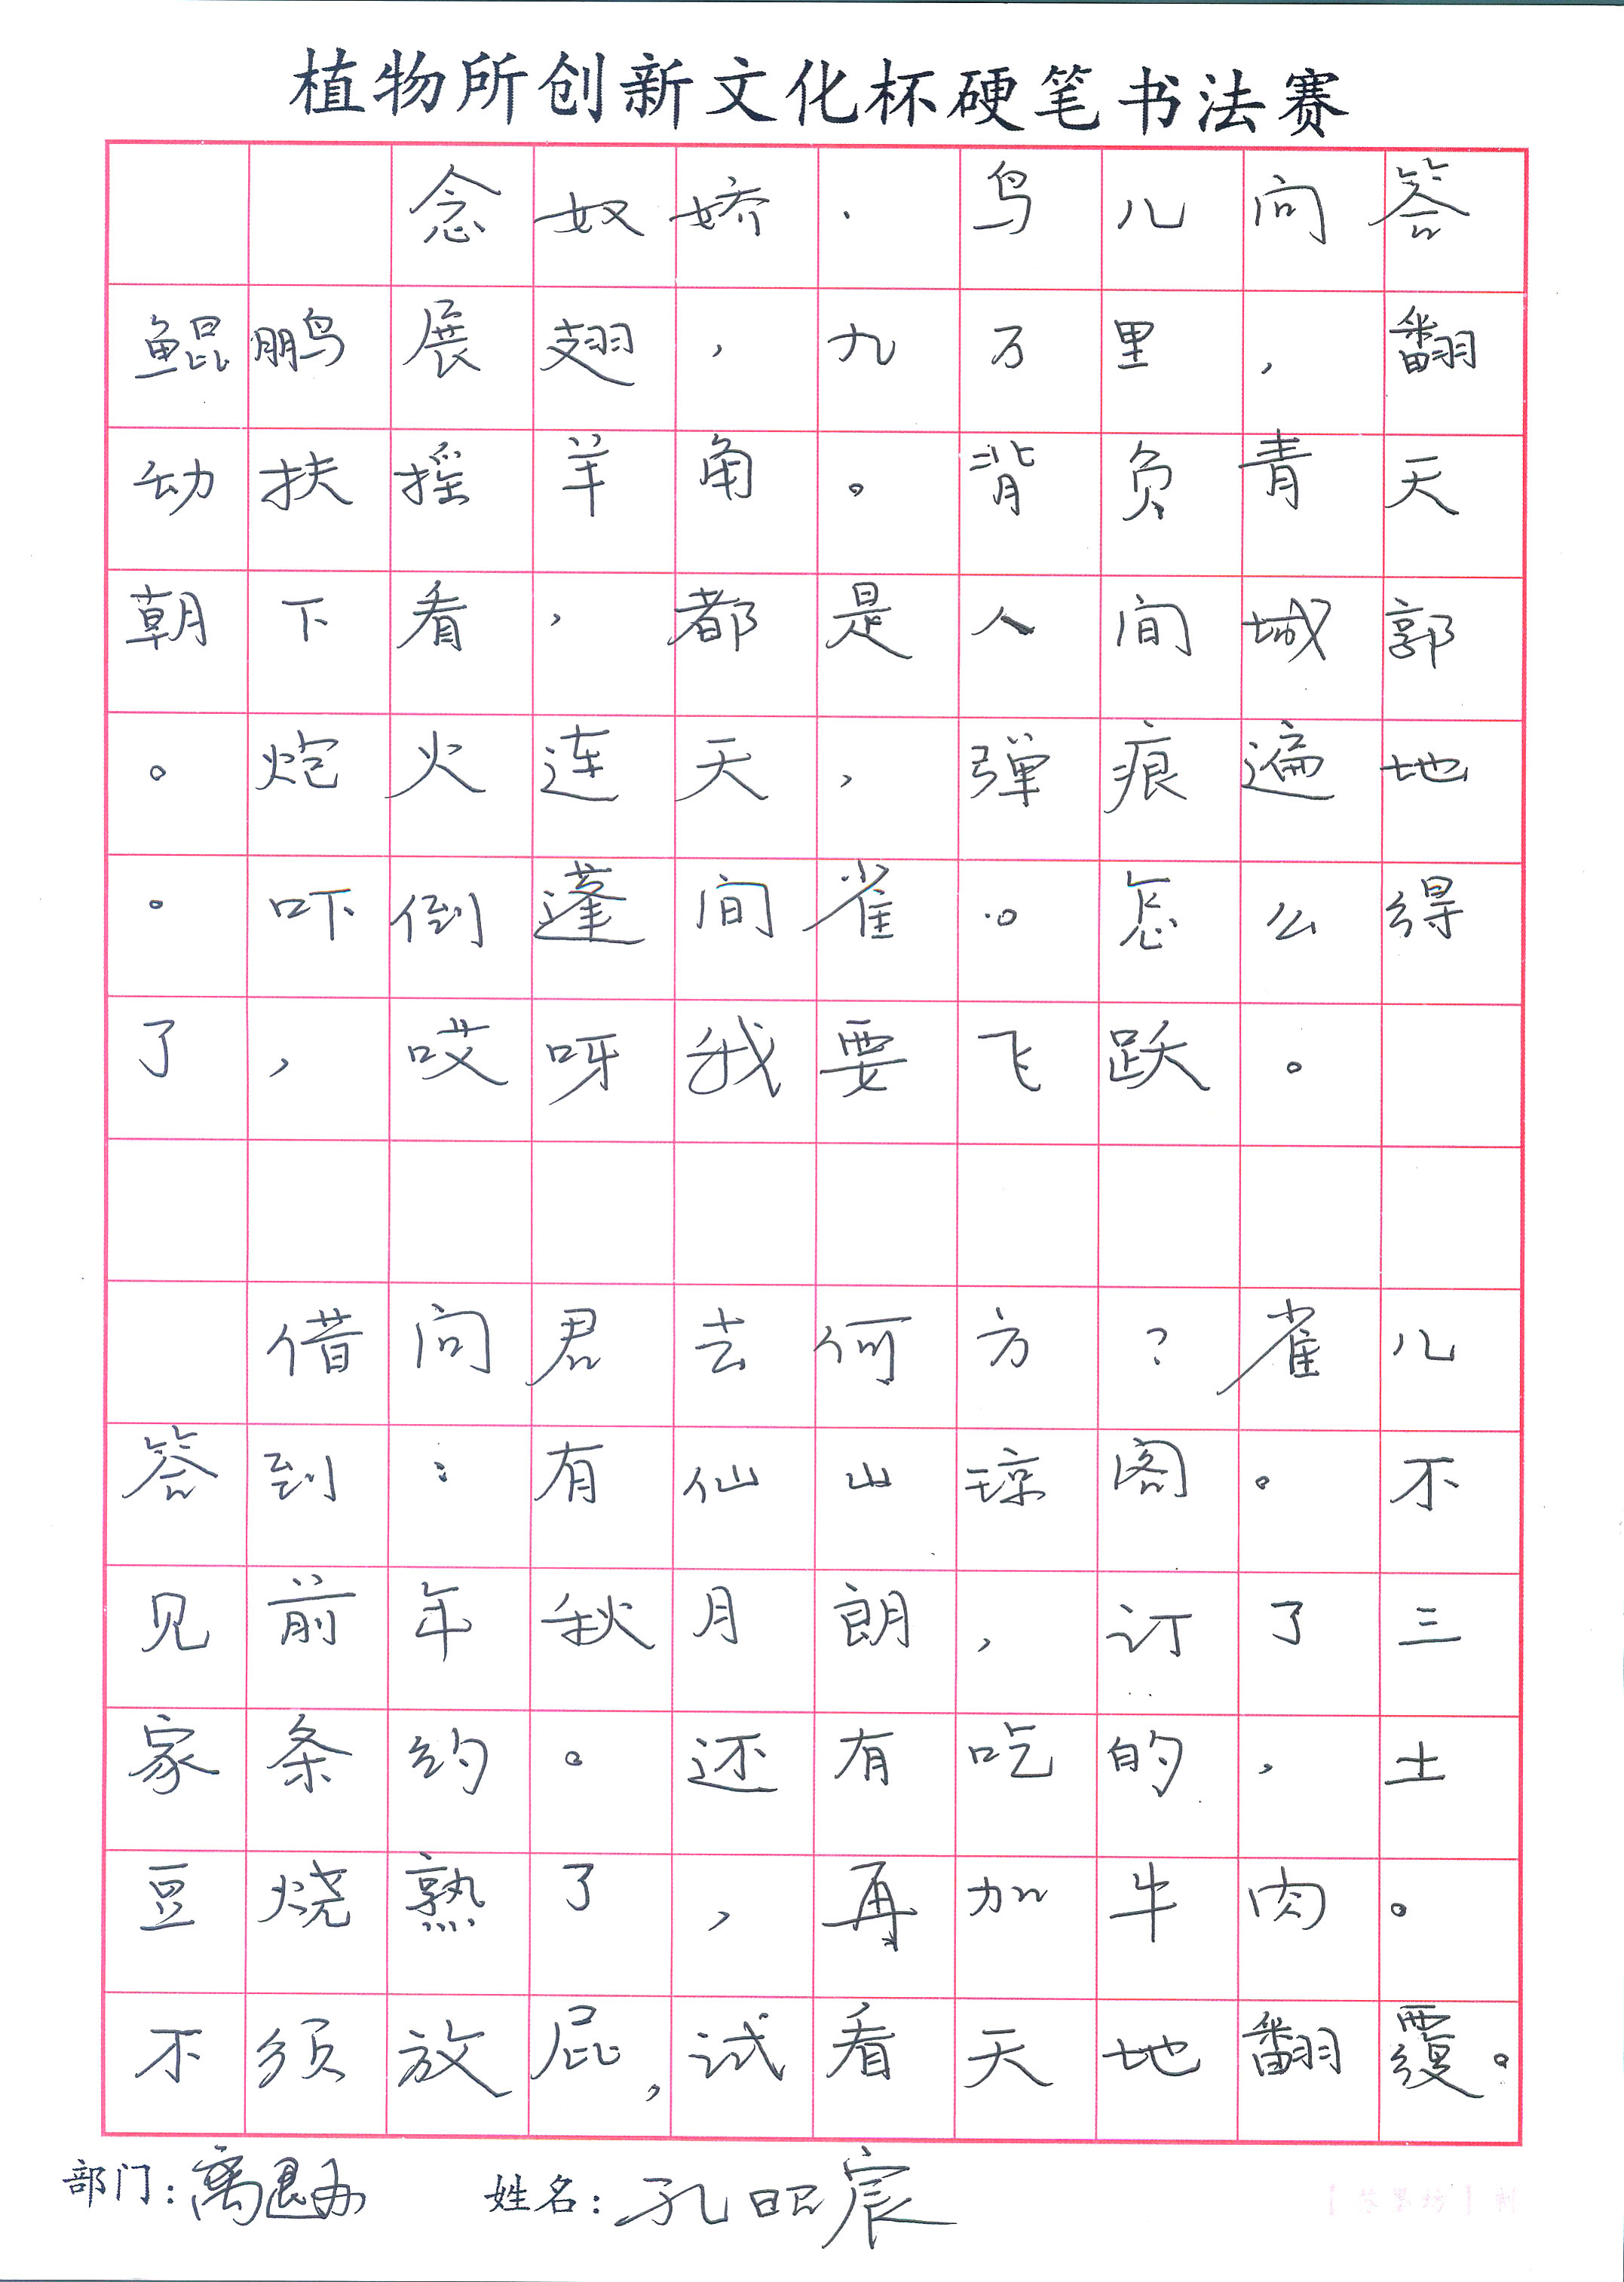 植物所创新文化杯硬笔书法赛
念奴娇·鸟儿问答
鲲鹏展翅，九万里，翻
动扶摇羊角。背负青天
朝下看，都是人间城郭
。炮火连天，弹痕遍地
。吓倒蓬间雀。怎么得
了，哎呀我要飞跃。
借问君去何方？雀儿
答到：有仙山琼阁。不
见前年秋月朗，订了三
家条约。还有吃的，土
豆烧熟了，再加牛肉。
不须放屁，试看天地翻覆。
部门：离退办 姓名：孔昭宸